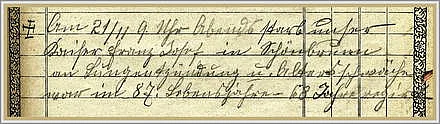 Am 21/11 9 Uhr Abends starb unser
Kaiser Franz Josef in Schönbrunn
an Lungenentzündung u. Altersschwäche
war im 87. Lebensjahre - 68 Jahre regiert